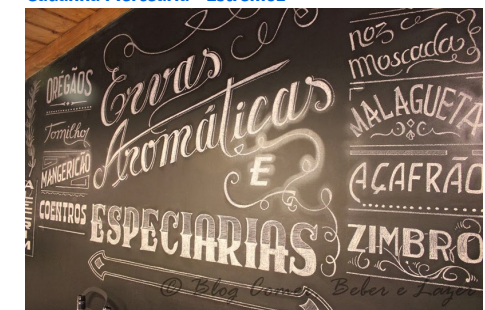 ORÉGÃOS
Tomilho
MANGERICÃO
COENTROS
Ervas
Aromáticas
E
ESPECIARIAS
noz
moscada
MALAGUETA
AÇAFRÃO
ZIMBRO
© Blog Comer, Beber e Lazer